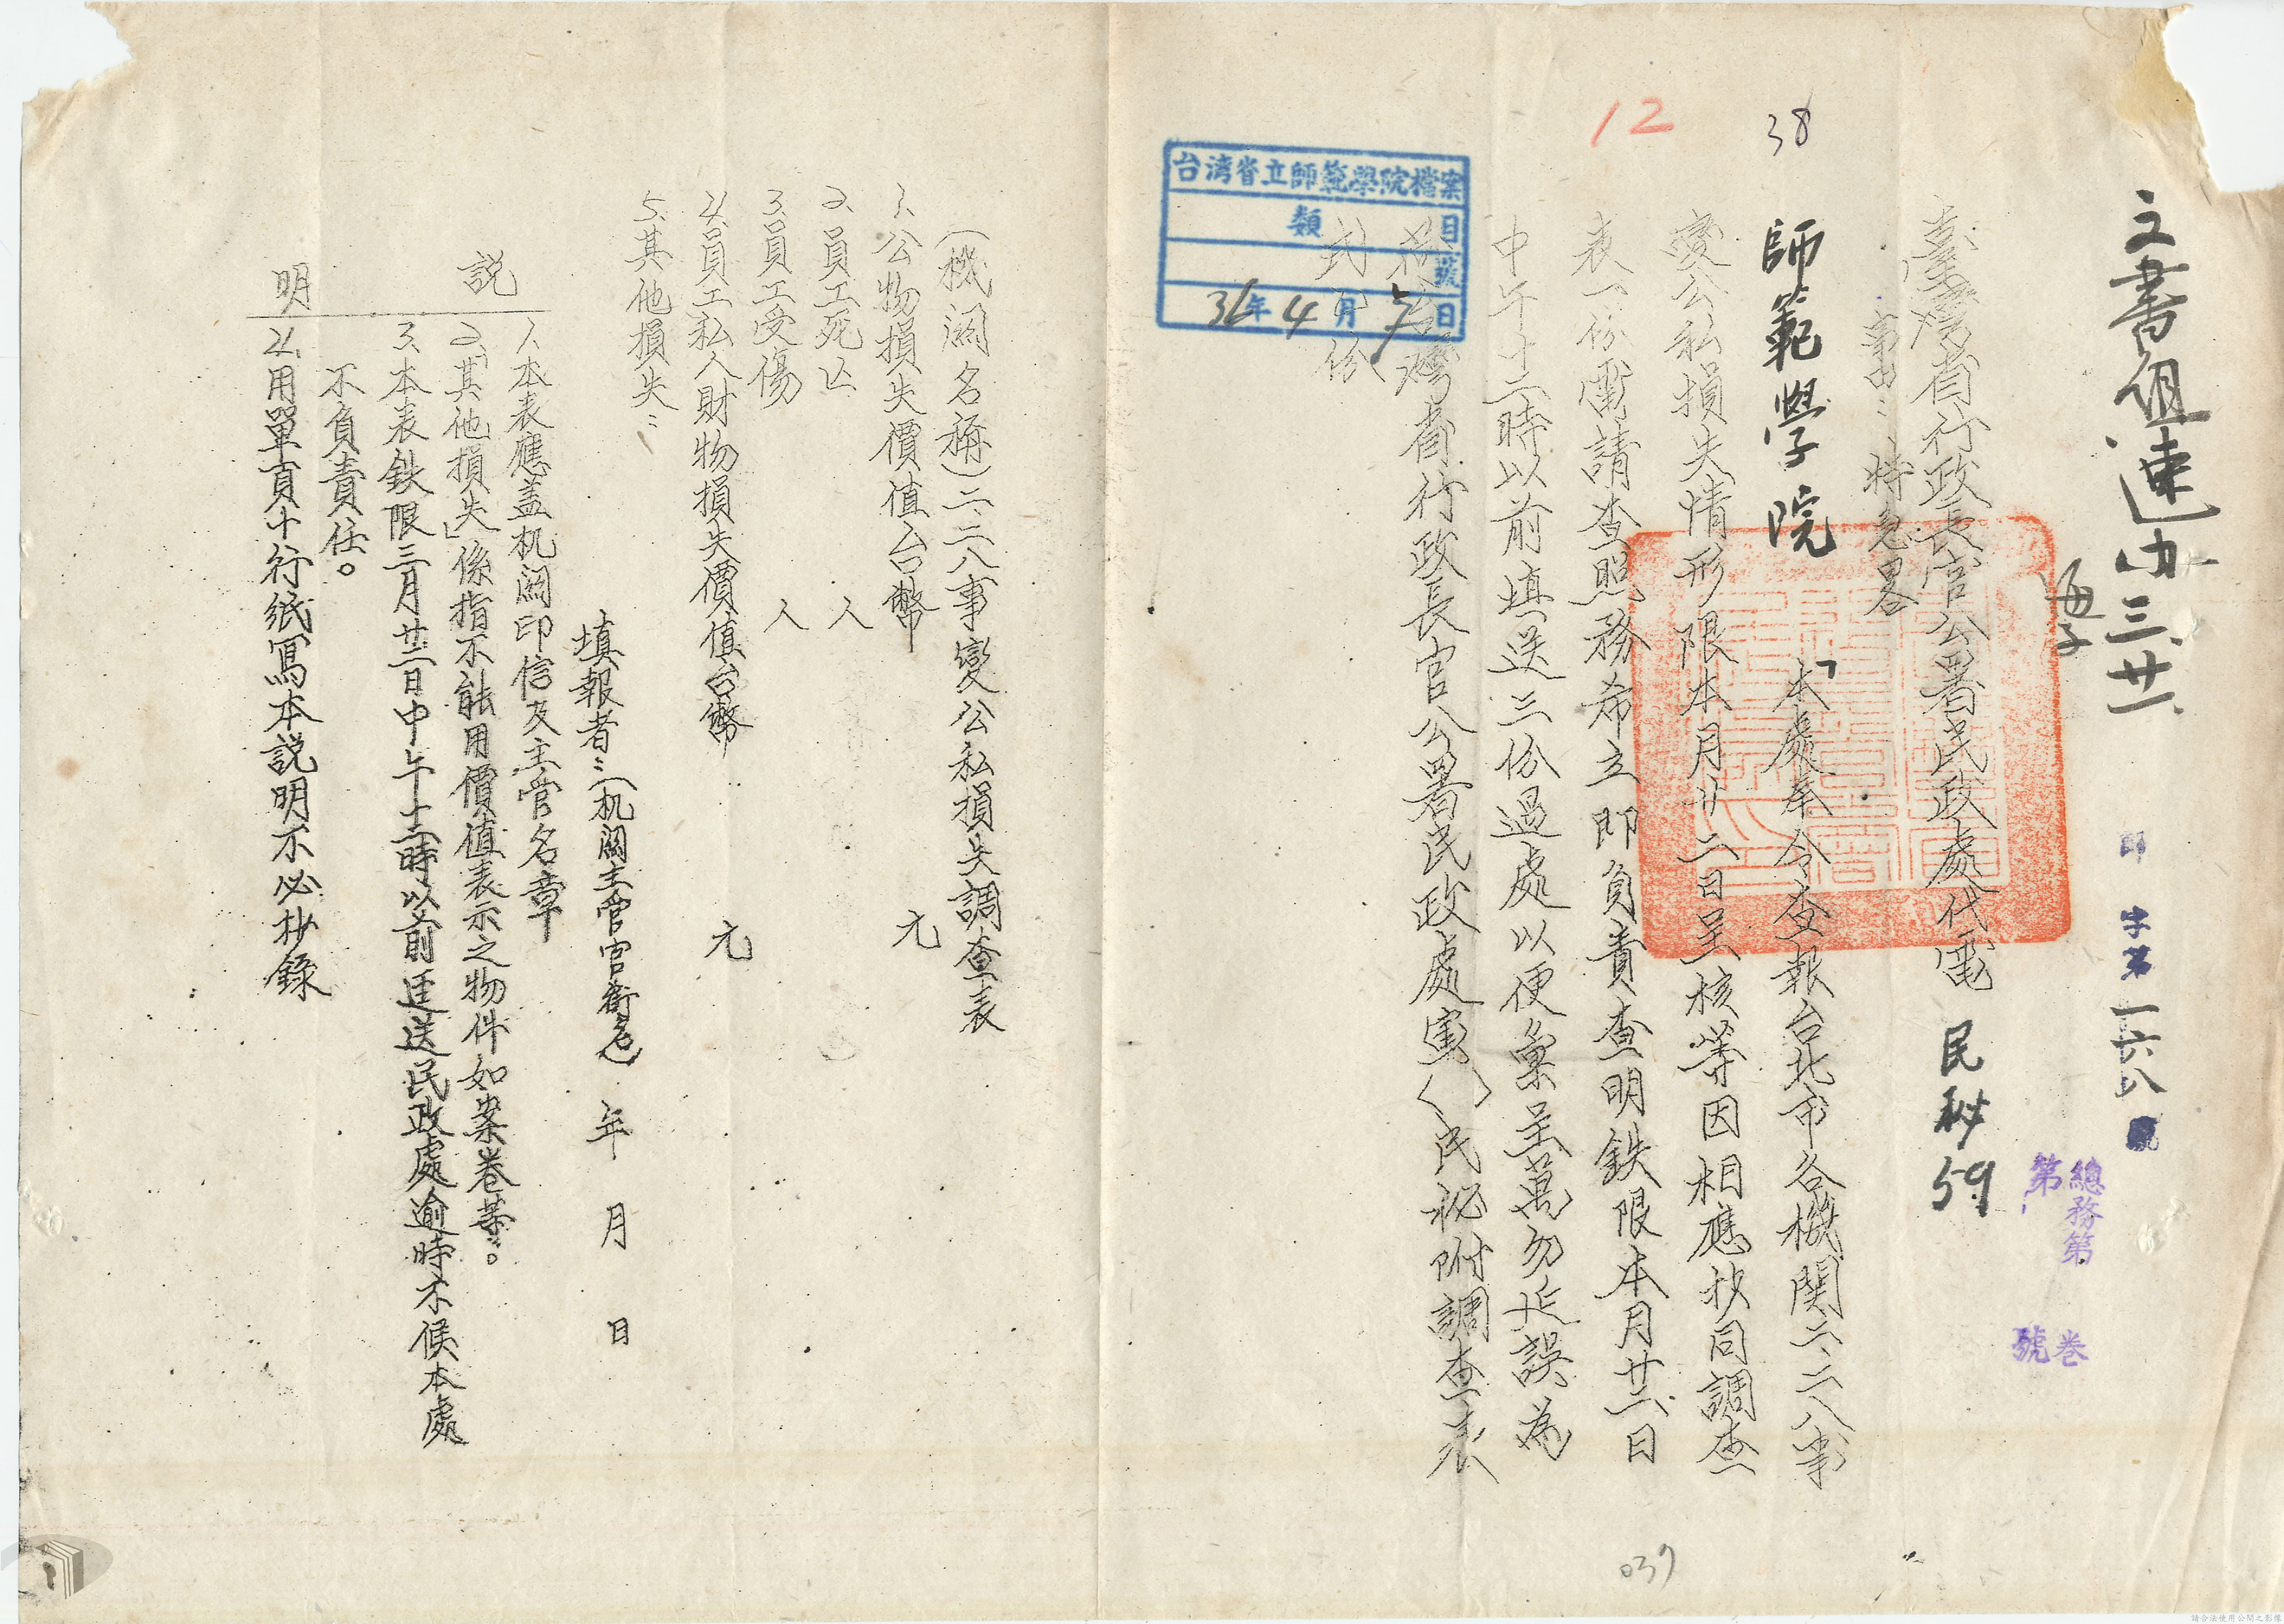 文書組速办 三.廿一.
印 字第一六八號
總務第 卷
第 號
臺灣省行政長官公署民政處代電 民秘59
事由:特急畧
師範學院
本處奉令查報台北市各機関二、二八事
變公私損失情形限本月廿二日呈核等因相應抄同調查
表一份電請查照務希立即負責查明鉄限本月廿二日
中午十二時以前填送三份過處以便彙呈萬勿延誤為
荷台灣省行政長官公署民政處寅()民秘附調查表
式一份
38
12
台湾省立師範學院檔案
類 目
號
36年4月7日
(機關名稱)二、二八事變公私損失調查表
1.公物損失價值台幣 元
2.員工死亡 人
3.員工受傷 人
4.員工私人財物損失價值台幣 元
5.其他損失:
填報者:(机關主管官銜名) 年 月 日
説明
1.本表應盖机關印信及主管名章
2.「其他損失」係指不能用價值表示之物件如案卷等。
3.本表鉄限三月廿二日中午十二時以前逕送民政處逾時不候本處
不負責任。
4.用單頁十行紙寫本説明不必抄錄
037
請合法使用公開之影像